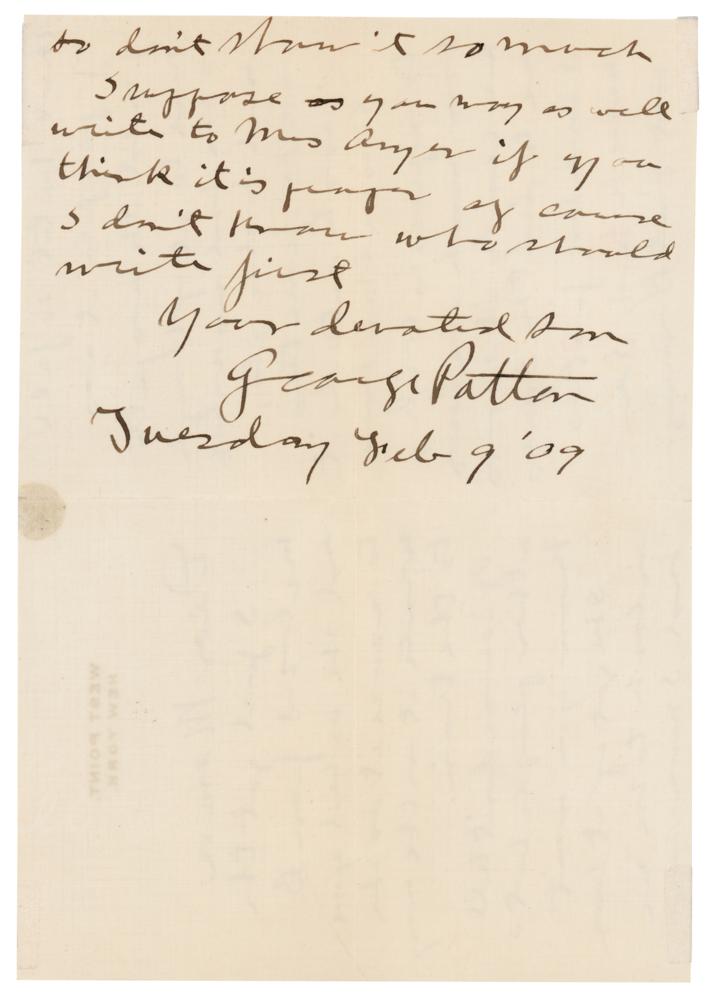 to don't show it so much
Suppose as you may as well
write to Mrs Ayer if you
think it is proper of course
I don't know who should
write first
Your devoted son
George Patton
Tuesday Feb 9 '09
WEST POINT.
NEW YORK